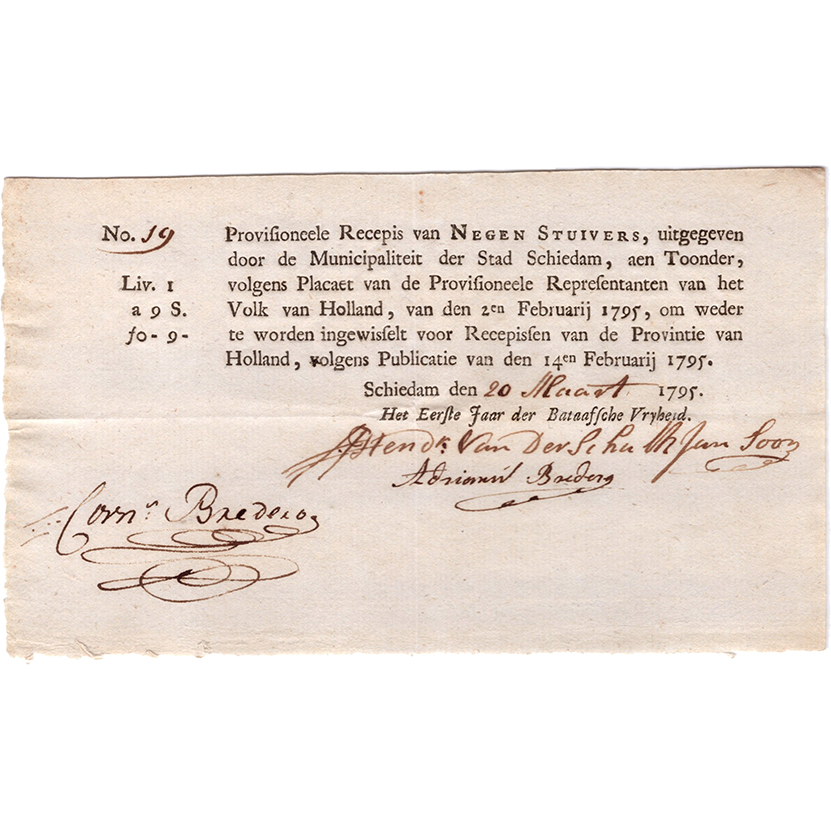 No. 19
Provisioneele Recepis van NEGEN STUIVERS, uitgegeven
door de Municipaliteit der Stad Schiedam, aen Toonder,
Liv. 1
volgens Placaet van de Provisioneele Representanten van het
a 9 S.
Volk van Holland, van den 2en Februarij 1795, om weder
fo - 9 -
te worden ingewisselt voor Recepissen van de Provintie van
Holland, volgens Publicatie van den 14en Februarij 1795.
Schiedam den 20 Maart 1795.
Het Eerste Jaar der Bataafsche Vryheid.
Hendk. Van Der Schalk Jan Soon
Adrianus Bredero
Corns. Bredero